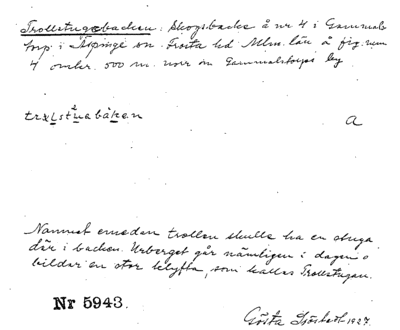 Trollstugebacken: Skogsbacke å nr 4 i Gammals-
torp i Äspinge sn. Frosta hd Mlm. län å fig. num
4 omkr. 500 m. norr om Gammalstorps by
a
Namnet emedan trollen skulle ha en stuga
där i backen. Urberget går nämligen i dagen o
bildar en stor klyfta, som kallas Trollstugan.
Nr 5943.
Gösta Sjöstedt 1927.